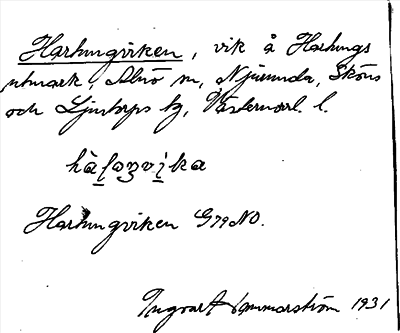 Hartungviken, vik å Hartungs
utmark, Alnö sn, Njurunda, Sköns
och Ljustorps tg, Västernorrl. l.
Hartungviken G79NO.
Ingvart Hammarström 1931